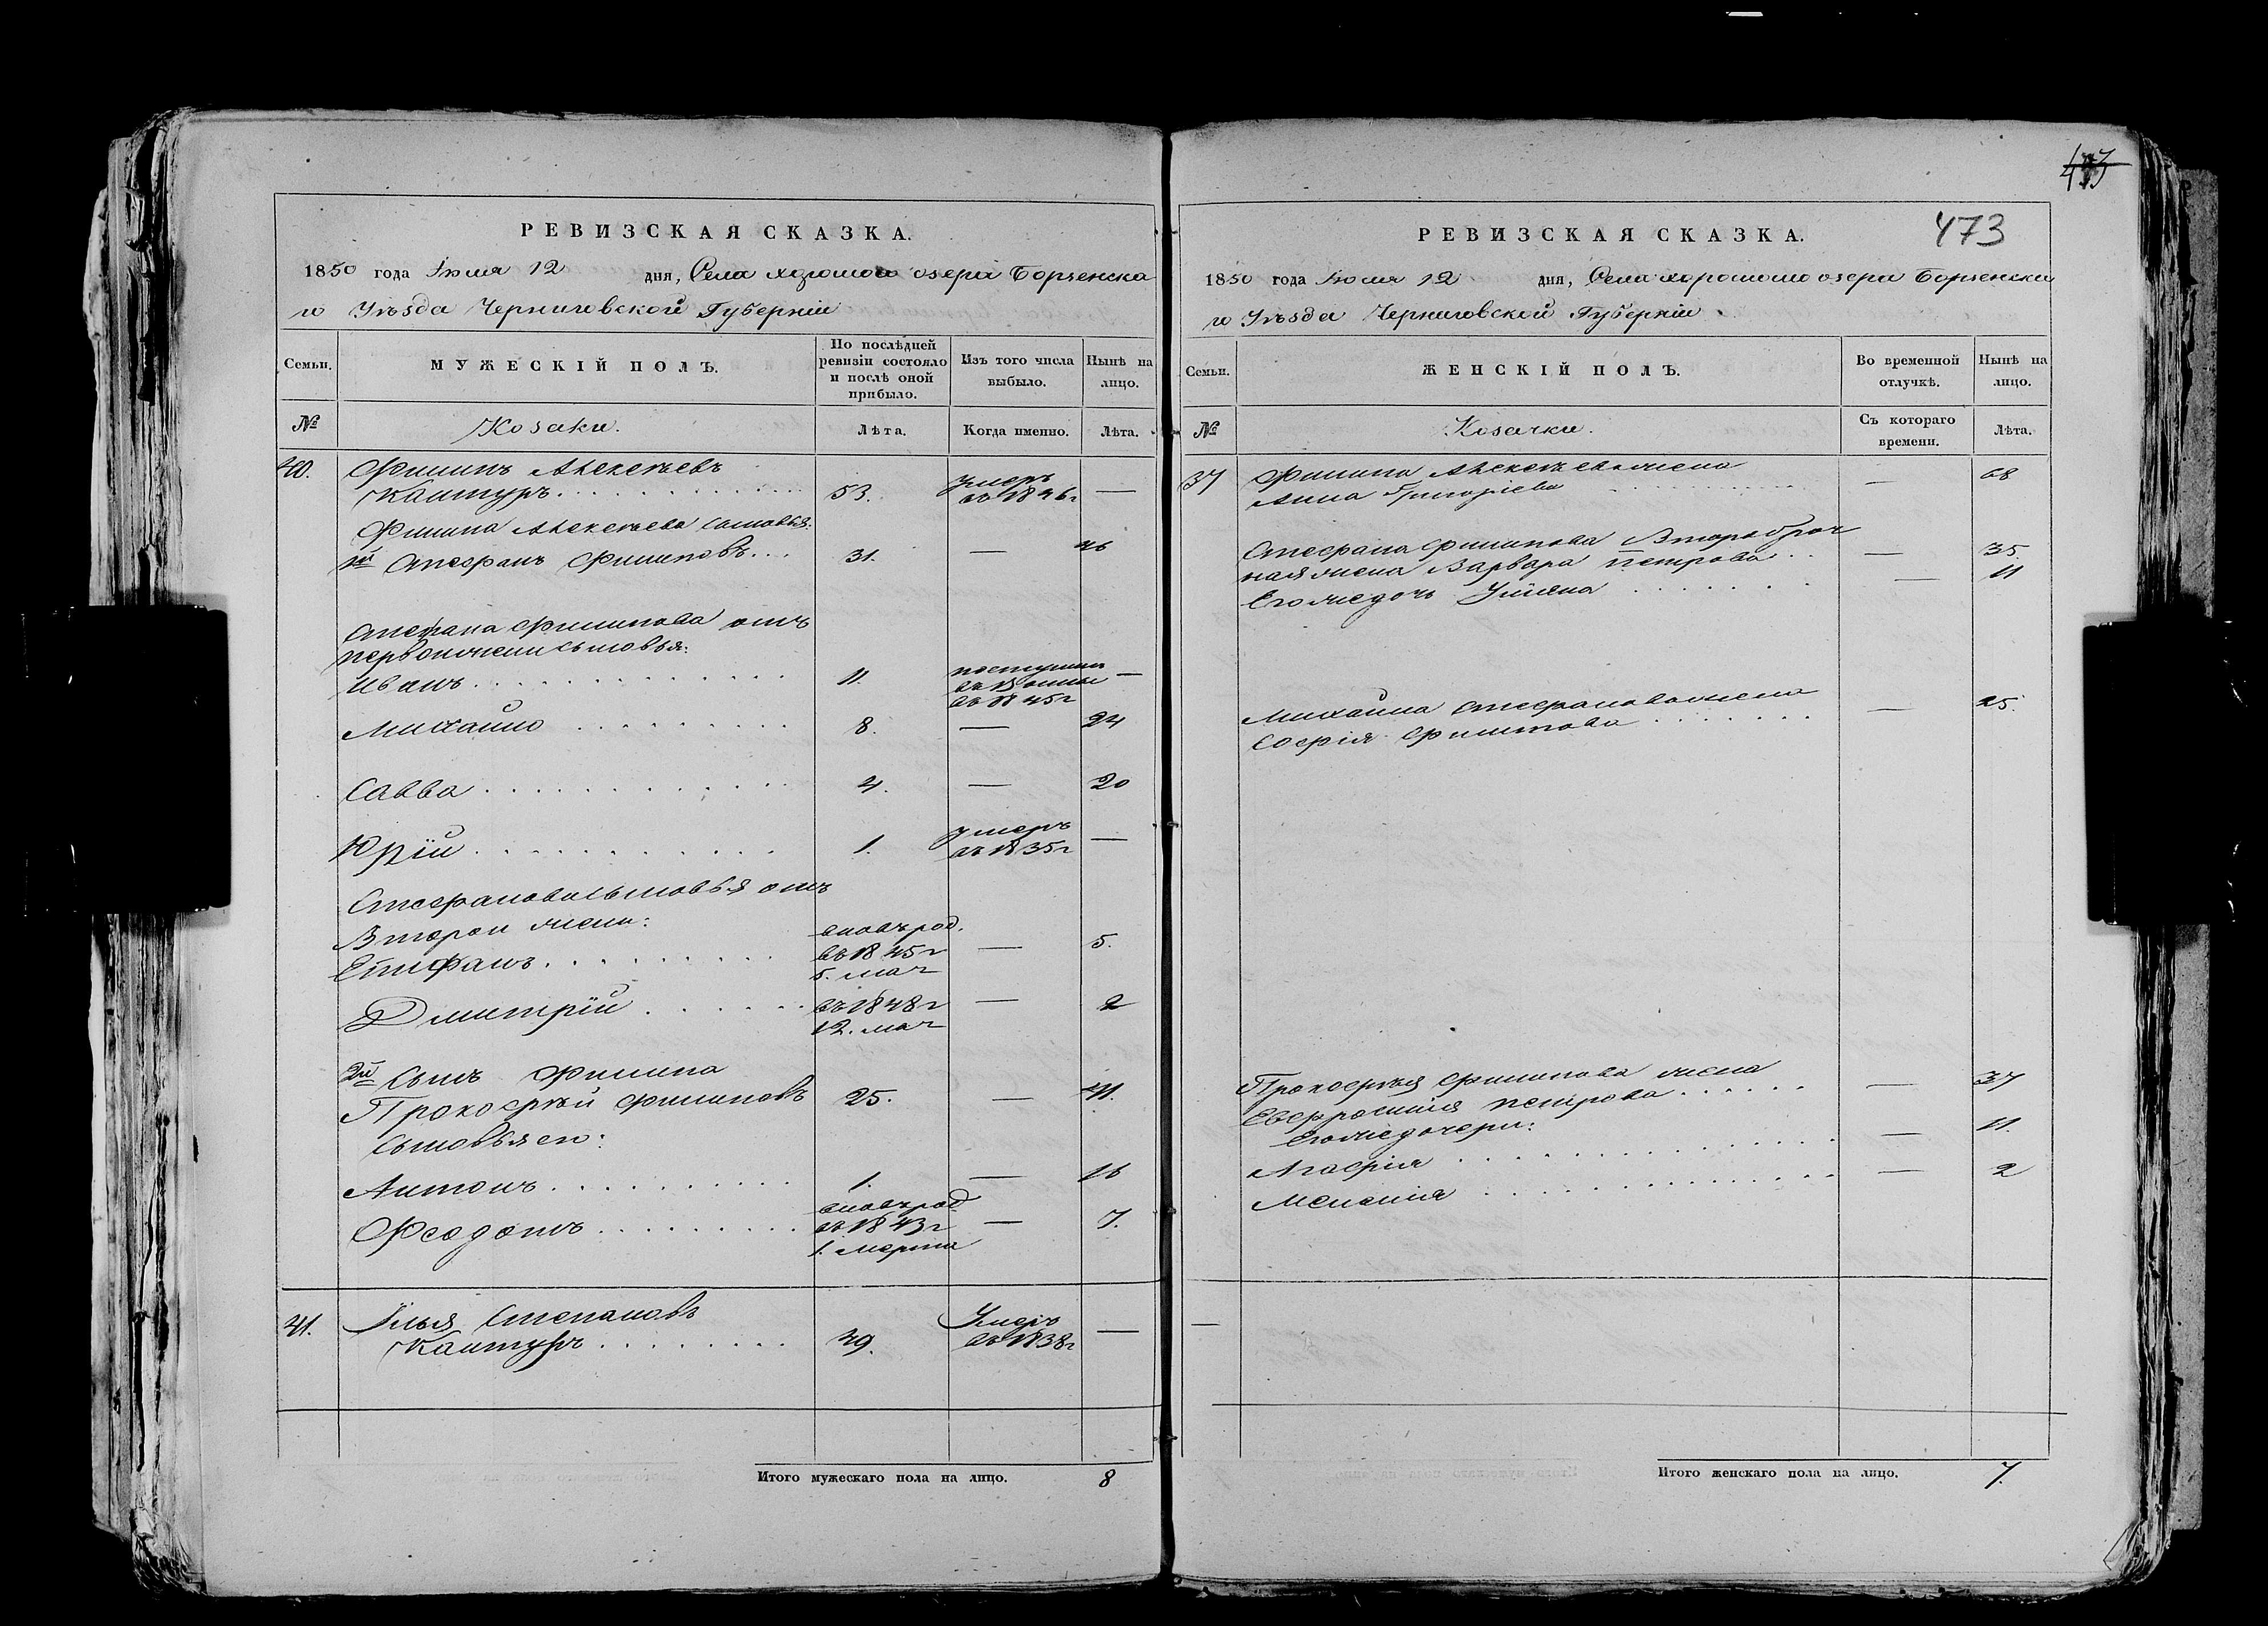 473
РЕВИЗСКАЯ СКАЗКА.
1850 года Июля 12 дня, Села хорошого озера Борзенска
го Уѣзда Черниговской Губерніи
Семьи.
МУЖЕСКІЙ ПОЛЪ.
По послѣдней ревизіи состояло и послѣ оной прибыло.
Изъ того числа выбыло.
Нынѣ на лицо.
№
Козаки.
Лѣта.
Когда именно.
Лѣта.
40. Филипъ Алексѣевъ
Кантуръ. 53. Умеръ въ 1846г —
Филипа Алексѣева сыновья:
1й Стефанъ Филиповъ... 31. — 46
Стефана Филипова отъ
первои жени сыновья:
Иванъ 11. поступилъ въ 1845г —
Михайло 8. — 24
Савва 4. — 20
Юрій 1. Умеръ въ 1835г —
Стефанова сыновья отъ
Второи жени:
Епифанъ вновь род. въ 1845г 5. мая — 5.
Дмитрій въ 1848г 12. мая — 2
2й Сынъ Филипа
Прокофѣй Филиповъ 25. — 41.
Сыновья его:
Антонъ 1. — 16
Феодотъ вновь род въ 1843г 1. марта — 7.
41. Илья Степановъ
Кантуръ 49. Умеръ въ 1838г —
Итого мужескаго пола на лицо. 8
473
РЕВИЗСКАЯ СКАЗКА.
1850 года Июля 12 дня, Села хорошого озера Борзенска
го Уѣзда Черниговской Губерніи
Семьи.
ЖЕНСКІЙ ПОЛЪ.
Во временной отлучкѣ.
Нынѣ на лицо.
№
Козачки.
Съ котораго времени.
Лѣта.
37 Филипа Алексѣева жена
Анна Григоріева — 68
Стефана Филипова Второбрач
ная жена Варвара Петрова — 35.
Его же дочь Уліяна — 11
Михаила Стефанова жена
Софія Филипова — 25.
Прокофѣя Филипова жена
Евфросинія Петрова — 37
Его же дочери:
Агафія — 11.
Меланія — 2
—
Итого женскаго пола на лицо. 7.